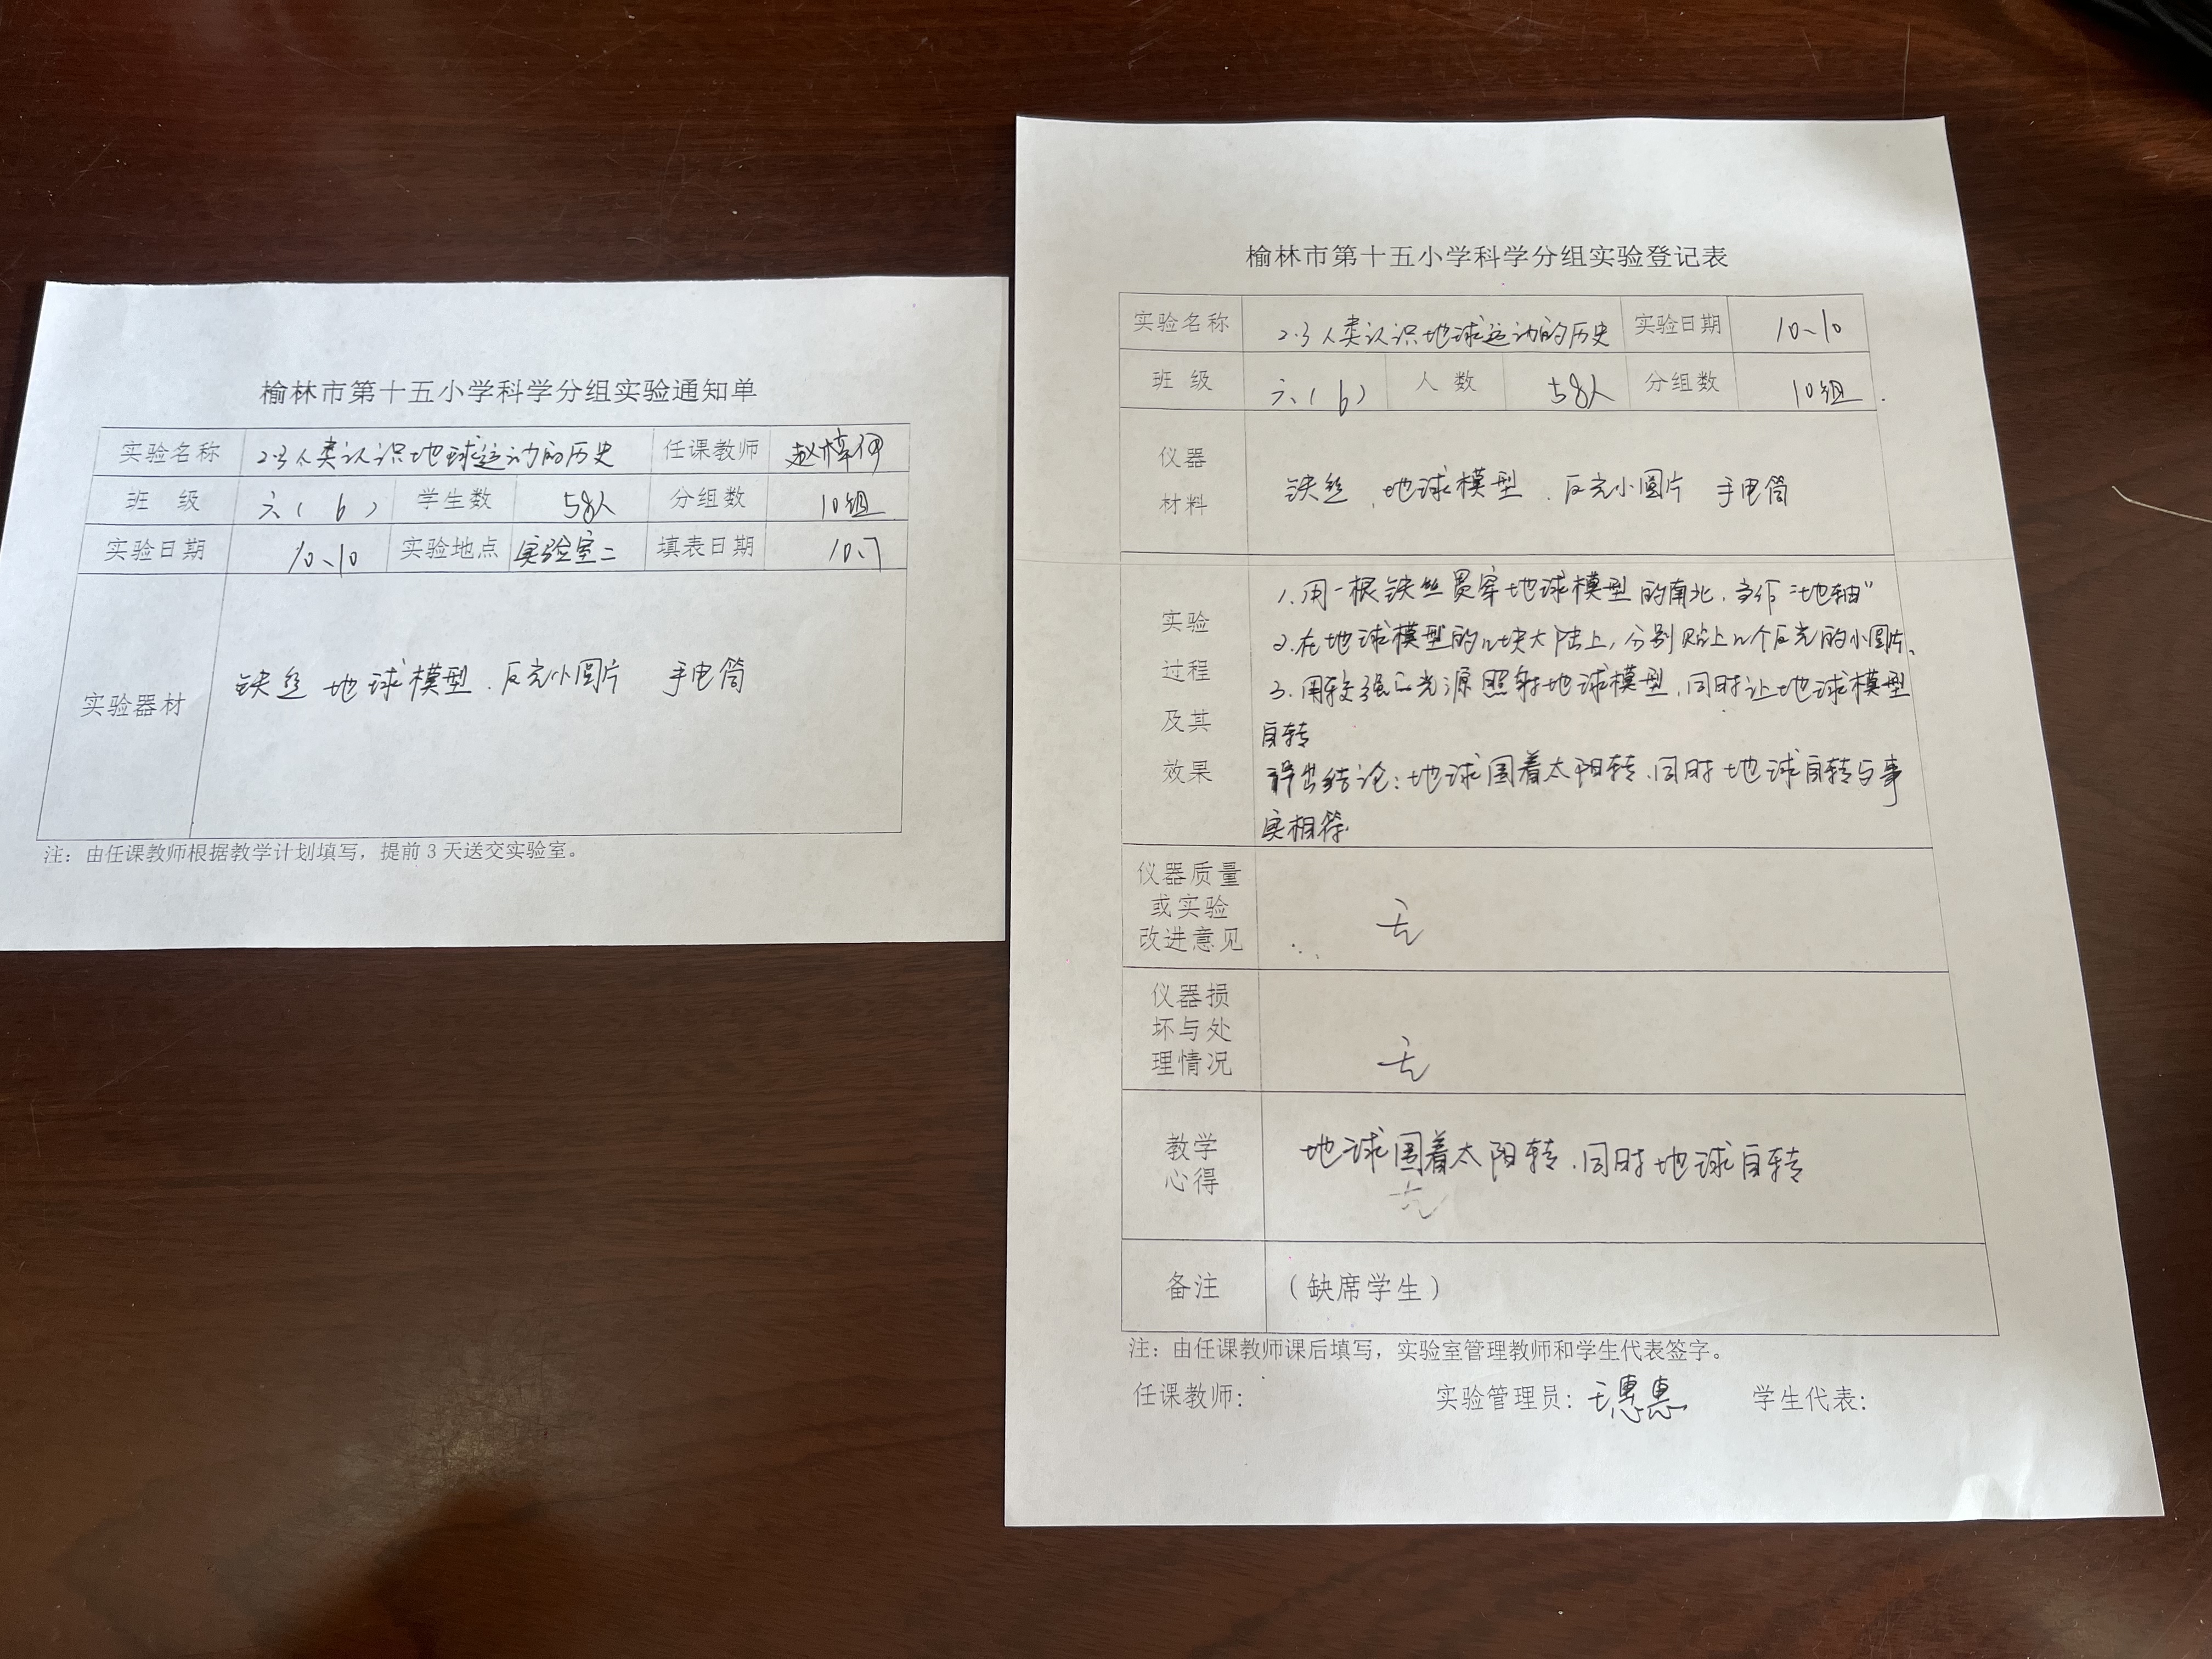 榆林市第十五小学科学分组实验通知单
实验名称 2.3人类认识地球运动的历史 任课教师 赵
班 级 六(6) 学生数 58人 分组数 10组
实验日期 10、10 实验地点 实验室二 填表日期 10.7
实验器材 铁丝 地球模型、反光小圆片 手电筒
注：由任课教师根据教学计划填写，提前3天送交实验室。
榆林市第十五小学科学分组实验登记表
实验名称 2.3人类认识地球运动的历史 实验日期 10、10
班 级 六(6) 人 数 58人 分组数 10组
仪器
材料
铁丝、地球模型、反光小圆片 手电筒
实验
过程
及其
效果
1.用一根铁丝贯穿地球模型的南北，当作“地轴”
2.在地球模型的几块大陆上，分别贴上几个反光的小圆片、
3.用较强的光源照射地球模型，同时让地球模型
自转
得出结论：地球围着太阳转、同时地球自转与事
实相符.
仪器质量
或实验
改进意见
无
仪器损
坏与处
理情况
无
教学
心得
地球围着太阳转、同时地球自转
无
备注 （缺席学生）
注：由任课教师课后填写，实验室管理教师和学生代表签字。
任课教师： 实验管理员：王惠惠 学生代表：